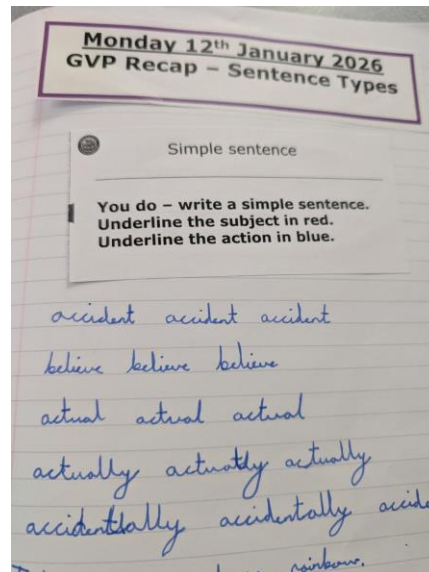 Monday 12th January 2026
GVP Recap – Sentence Types
Simple sentence
You do – write a simple sentence.
Underline the subject in red.
Underline the action in blue.
accident accident accident
believe believe believe
actual actual actual
actually actually actually
accidentally accidentally accide
rainbow.